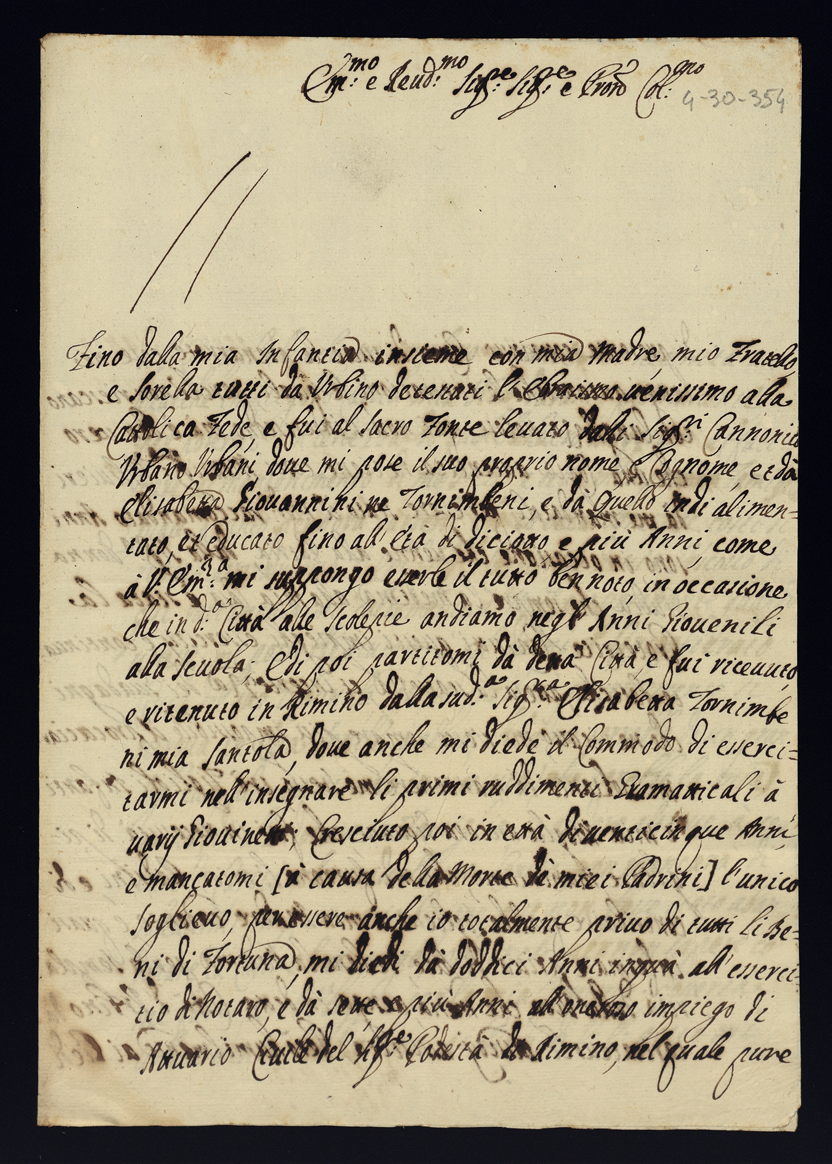 Em:mo e Reud:mo Sig:re Sig:re e Pron Col:mo
4-30-354
Fino dalla mia Infantia insieme con mia Madre, mio Fratello,
e Sorella tutti da Urbino detenati l' uenissimo alla
Cattolica Fede, e fui al Sacro Fonte leuato dalli Sigri Cannonico
Urbano Urbani doue mi pose il suo proprio nome e Cognome, et dà
Elisabetta Giouannini ne Tornimbeni, e da Quello indi alimen=
tato, et educato fino all'età di diciotto e più Anni come
à V. Em:za mi suppongo esserle il tutto ben noto, in occasione
che in d:a Città alle Scolepie andiamo negl' Anni Giouenili
alla scuola; E di poi partitomi dà detta Città, e fui riceuuto,
e ritenuto in Rimino dalla sud:a Sig:ra Elisabetta Tornimbe
ni mia Santola, doue anche mi diede il Commodo di esserci=
tarmi nell'insegnare li primi ruddimenti Gramatticali à
uarij Giouinetti; Cresciuto poi in età di uenticinque Anni,
e mancatomi [à causa della Morte de miei Padrini] l'unico
soglieuo, per essere anche io totalmente priuo di tutti li Be=
ni di Fortuna, mi diedi dà doddici Anni inquà all'esserci=
tio di Notaro, e dà sette e più Anni all'onesto impiego di
Attuario Ciuile del Sig:re Podestà di Rimino, nel quale pure